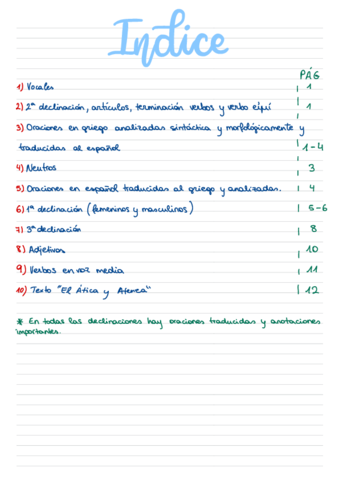 Indice
PÁG
1) Vocales 1
2) 2ª declinación, artículos, terminación verbos y verbo eiµí 1
3) Oraciones en griego analizadas sintáctica y morfológicamente y
traducidas al español 1-4
4) Neutros 3
5) Oraciones en español traducidas al griego y analizadas. 4
6) 1ª declinación (femeninos y masculinos) 5-6
7) 3ª declinación 8
8) Adjetivos 10
9) Verbos en voz media 11
10) Texto "El Ática y Atenea" 12
* En todas las declinaciones hay oraciones traducidas y anotaciones
importantes.